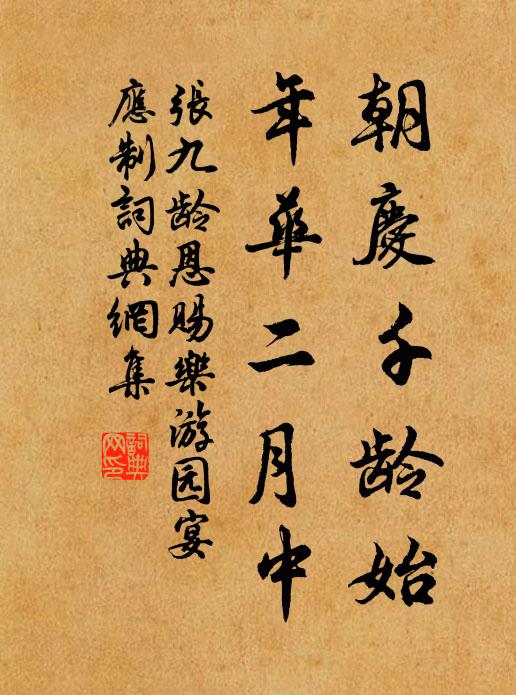 朝慶千龄始
年華二月中
張九龄恩賜樂游园宴
應制詞典網集
詞典网印